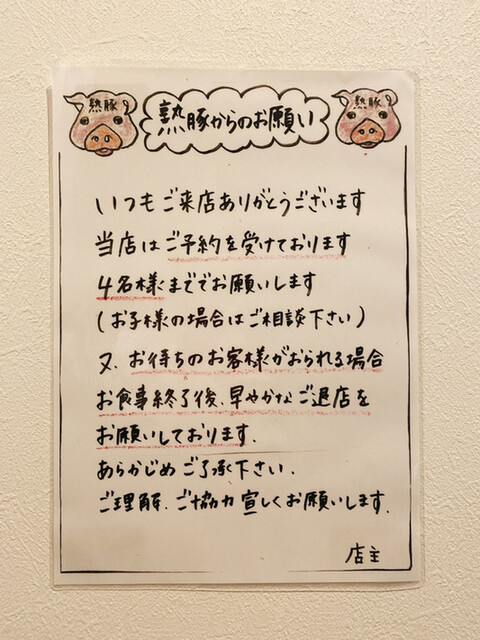 熟豚
熟豚からのお願い
熟豚
いつもご来店ありがとうございます
当店はご予約を受けております
4名様まででお願いします
(お子様の場合はご相談下さい)
又、お待ちのお客様がおられる場合
お食事終了後、早やかなご退店を
お願いしております.
あらかじめご了承下さい.
ご理解、ご協力宜しくお願いします.
店主